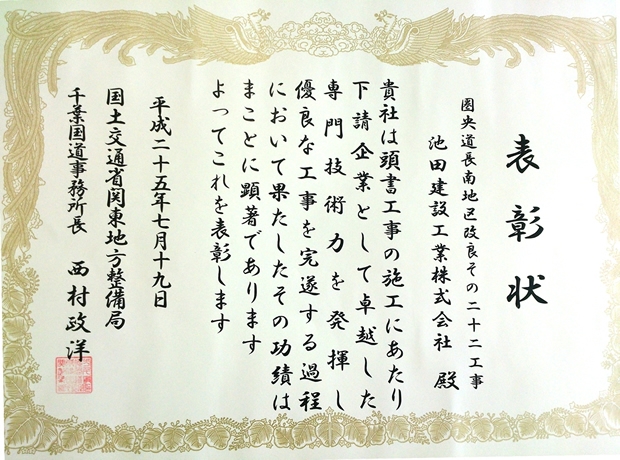 表彰状
圏央道長南地区改良その二十二工事
池田建設工業株式会社 殿
貴社は頭書工事の施工にあたり
下請企業として卓越した
専門技術力を発揮し
優良な工事を完遂する過程
において果たしたその功績は
まことに顕著であります
よってこれを表彰します
平成二十五年七月十九日
国土交通省関東地方整備局
千葉国道事務所長 西村政洋